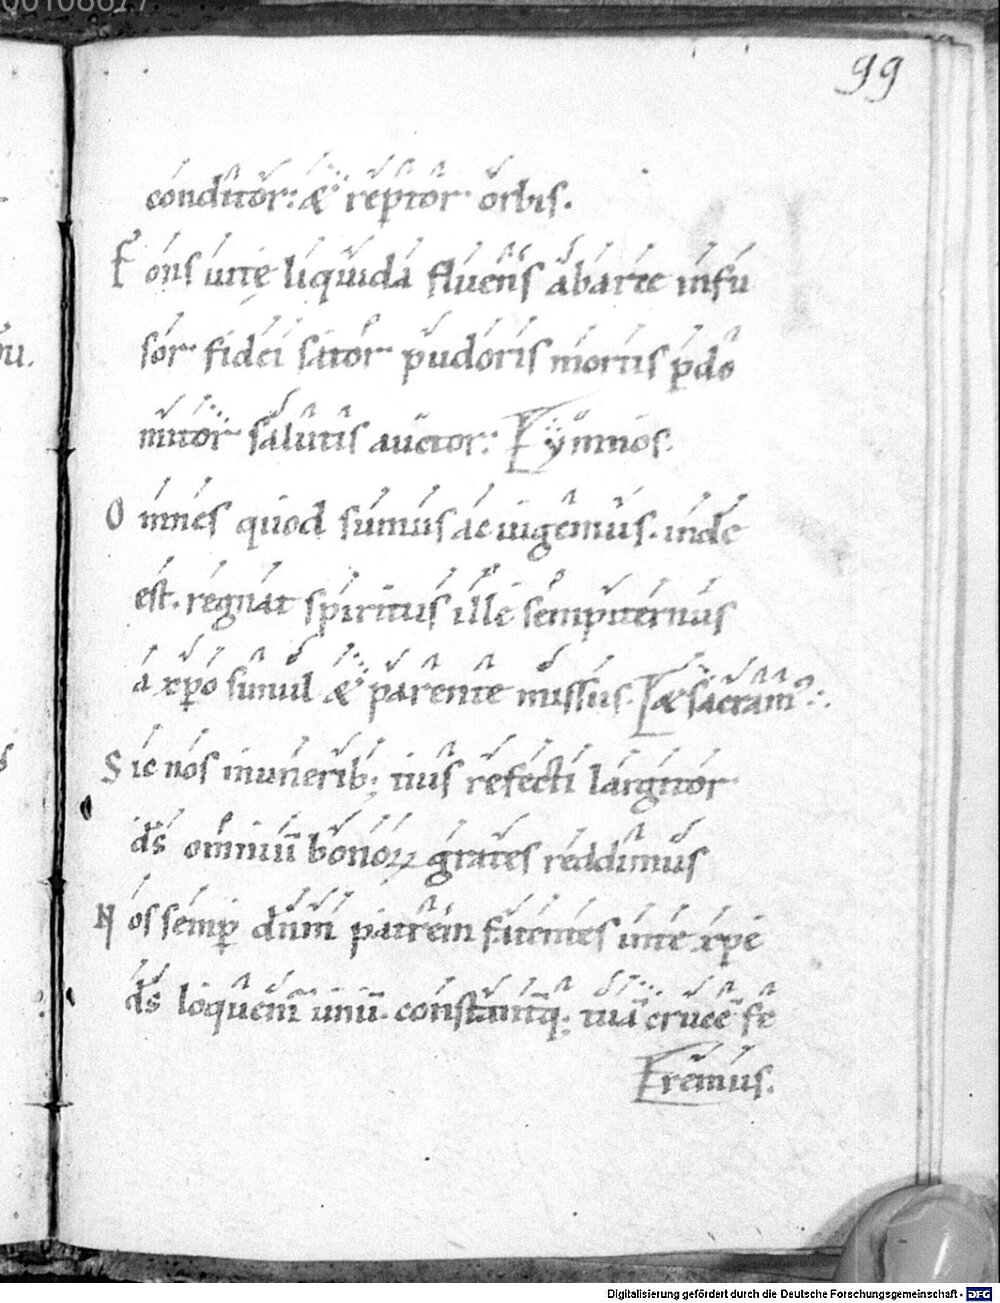 00108627
99
conditor: & reptor orbis.
Fons uitę liquida fluens ab arce infu
sor fidei sator pudoris mortis pdo
mitor salutis auctor: Hymnos.
Omnes quod sumus ac uigemus. inde
est. regnat spiritus ille sempiternus
a xpo simul & parente missus. & sacram
Sic nos munerib; tuis refecti largitor
ds omniū bonoꝝ grates reddimus
Nos semp dnm patrem fitentes unte xpe
ds loquem unū. constantq; tuā crucē fe
remus.
Digitalisierung gefördert durch die Deutsche Forschungsgemeinschaft - DFG